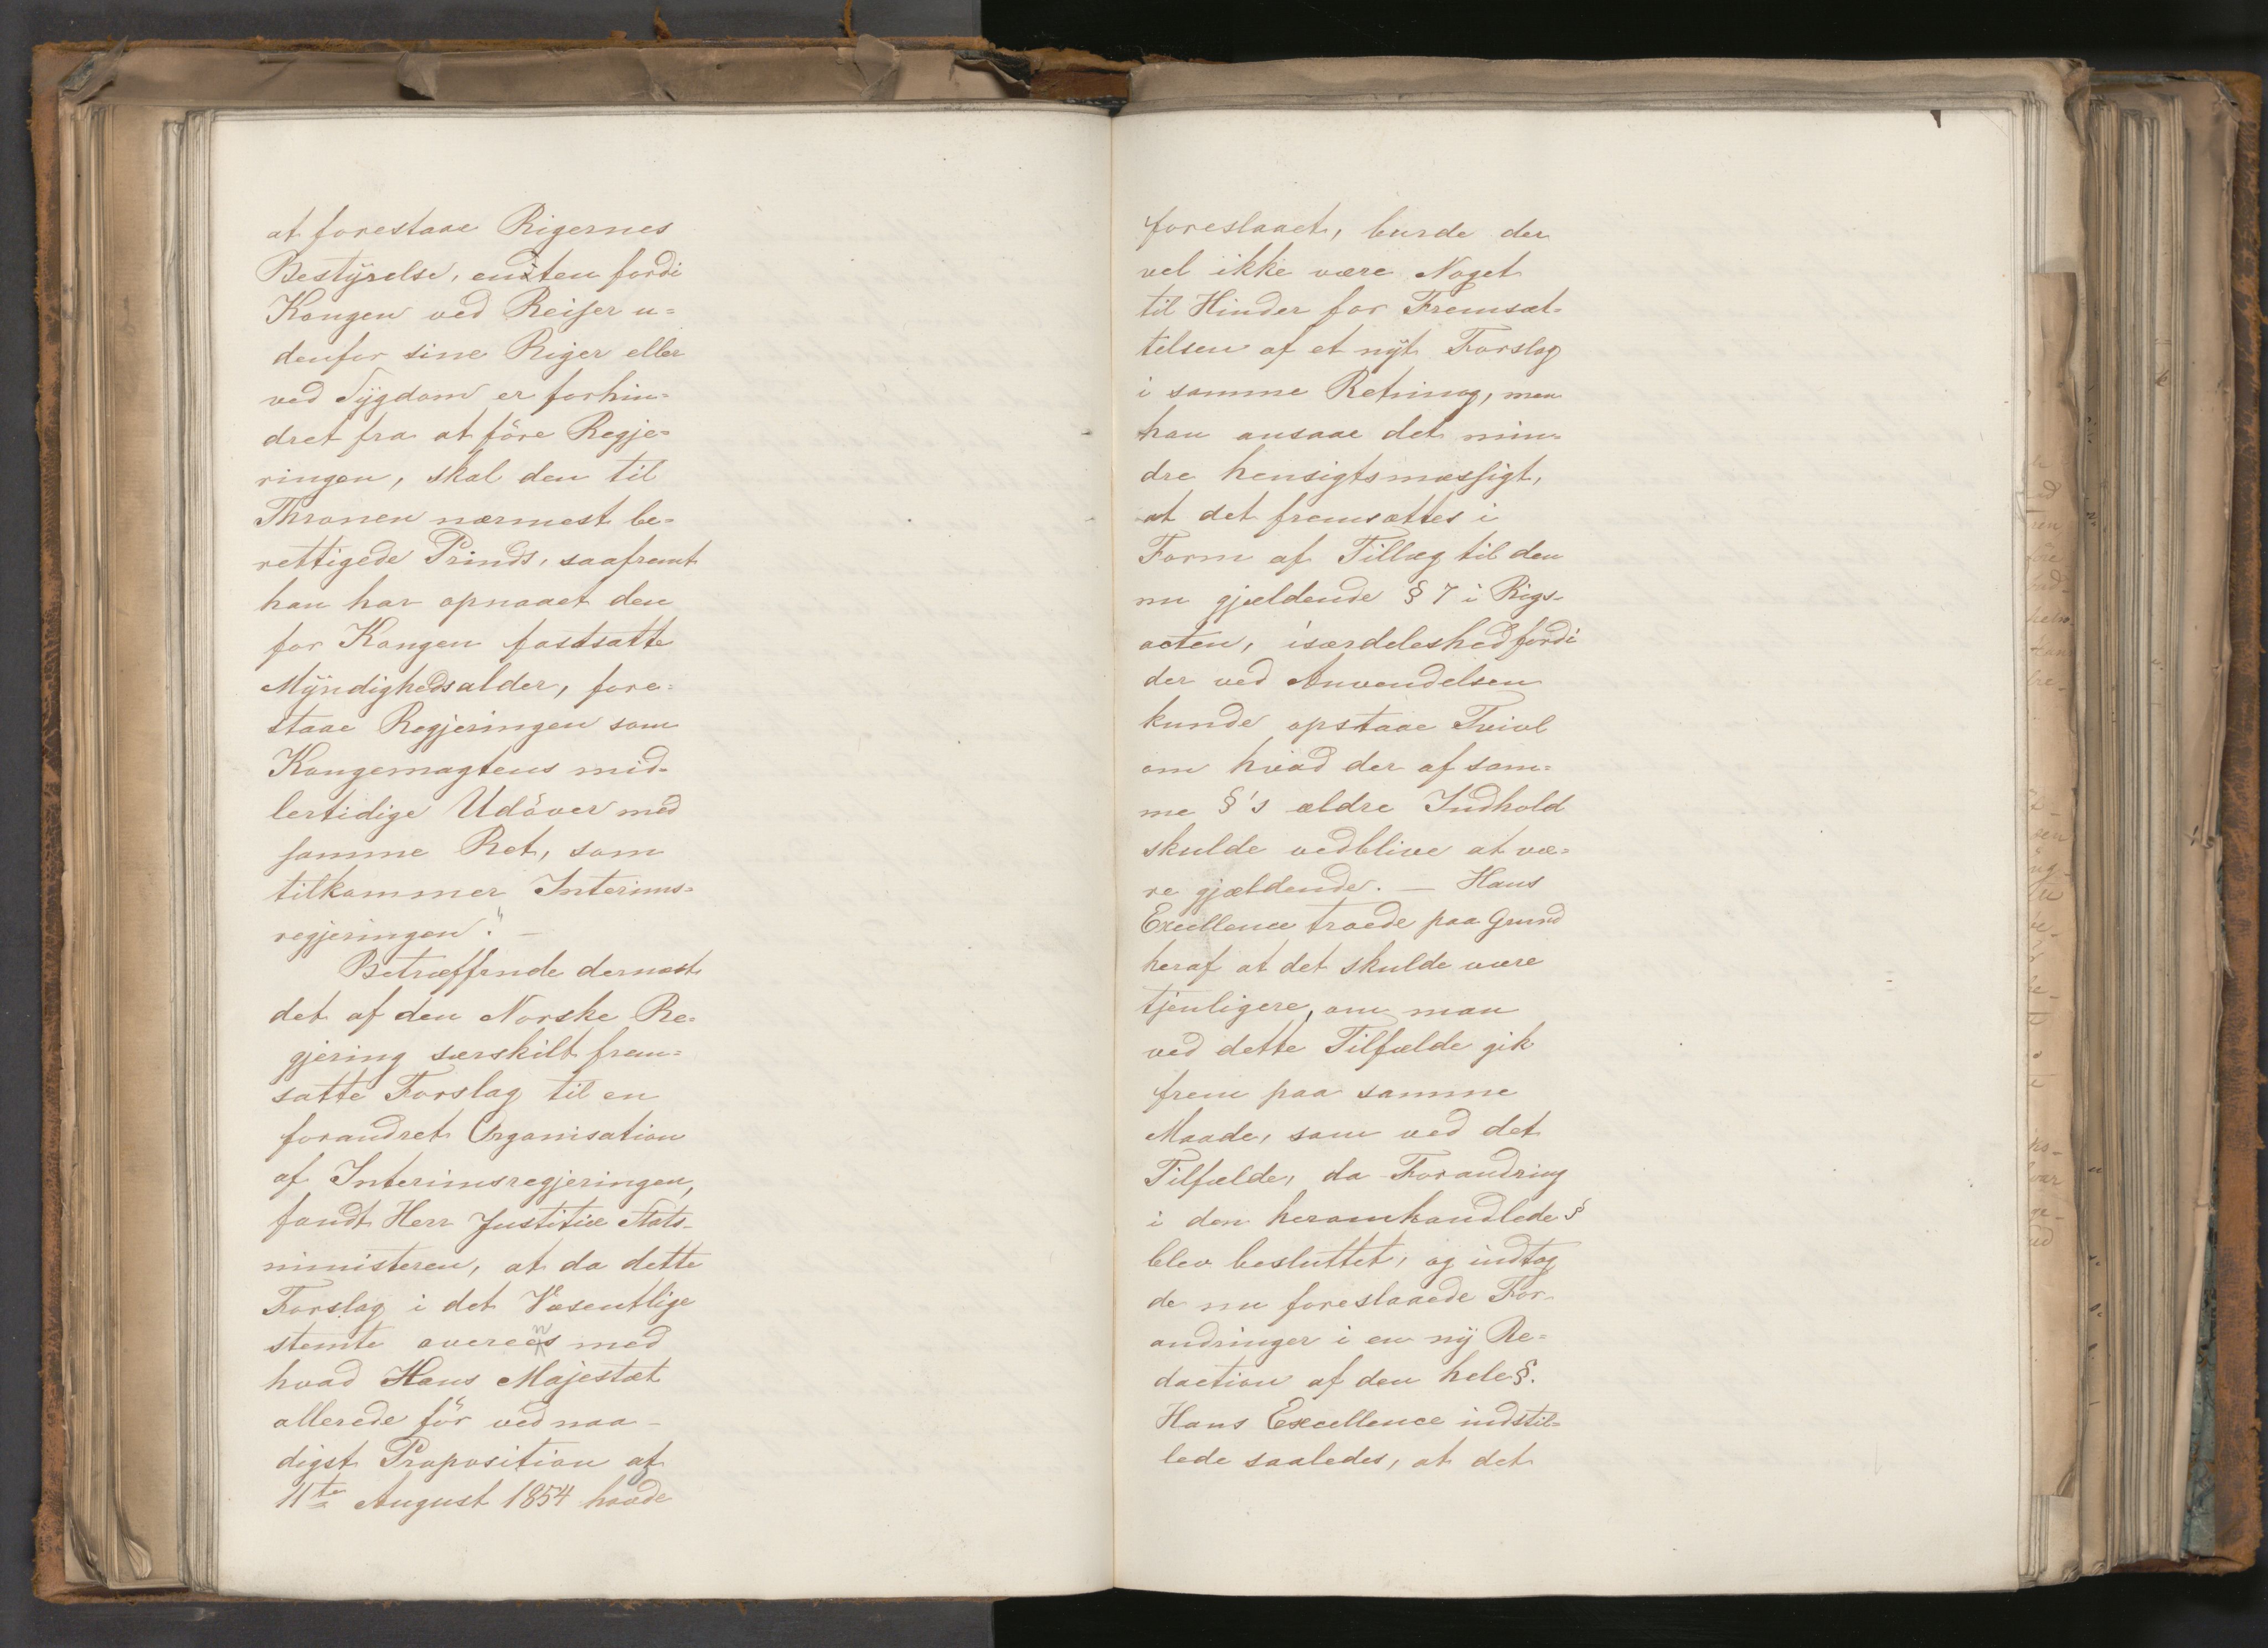 at forestaae Rigernes
Bestÿrelse, enten fordi
Kongen ved Reiser u=
denfor sine Riger eller
ved Sÿgdom er forhin=
dret fra at före Regje=
ringen, skal den til
Thronen nærmest be=
rettigede Prinds, saafremt
han har opnaaet den
for Kongen fastsatte
Mÿndighedsalder, fore=
staae Regjeringen som
Kongemagtens mid=
lertidige Udöver med
samme Ret, som
tilkommer Interims=
regjeringen". —
Betræffende dernæst
det af den Norske Re=
gjering særskilt frem=
satte Forslag til en
forandret Organisation
af Interimsregjeringen,
fandt Herr Justitiæ Stats-
ministeren, at da dette
Forslag i det Væsentlige
stemte overeens med
hvad Hans Majestæt
allerede för ved naa-
digst Proposition af
11te August 1854 havde
foreslaaet, burde der
vel ikke være Noget
til Hinder for Fremsæt-
telsen af et nÿt Forslag
i samme Retning, men
han ansaae det min=
dre hensigtsmæssigt,
at det fremsættes i
Form af Tillæg til den
nu gjældende § 7 i Rigs-
acten, isærdeleshed fordi
der ved Anvendelsen
kunde opstaae Tvivl
om hvad der af sam=
me §'s ældre Indhold
skulde vedblive at væ=
re gjældende. — Hans
Excellence troede paa Grund
heraf at det skulde være
tjenligere, om man
ved dette Tilfælde gik
frem paa samme
Maade, som ved det
Tilfælde, da Forandring
i den heromhandlede §
blev besluttet, og indtog
de nu foreslaaede For-
andringer i en nÿ Re=
daction af den hele §.
Hans Excellence indstil=
lede saaledes, at det